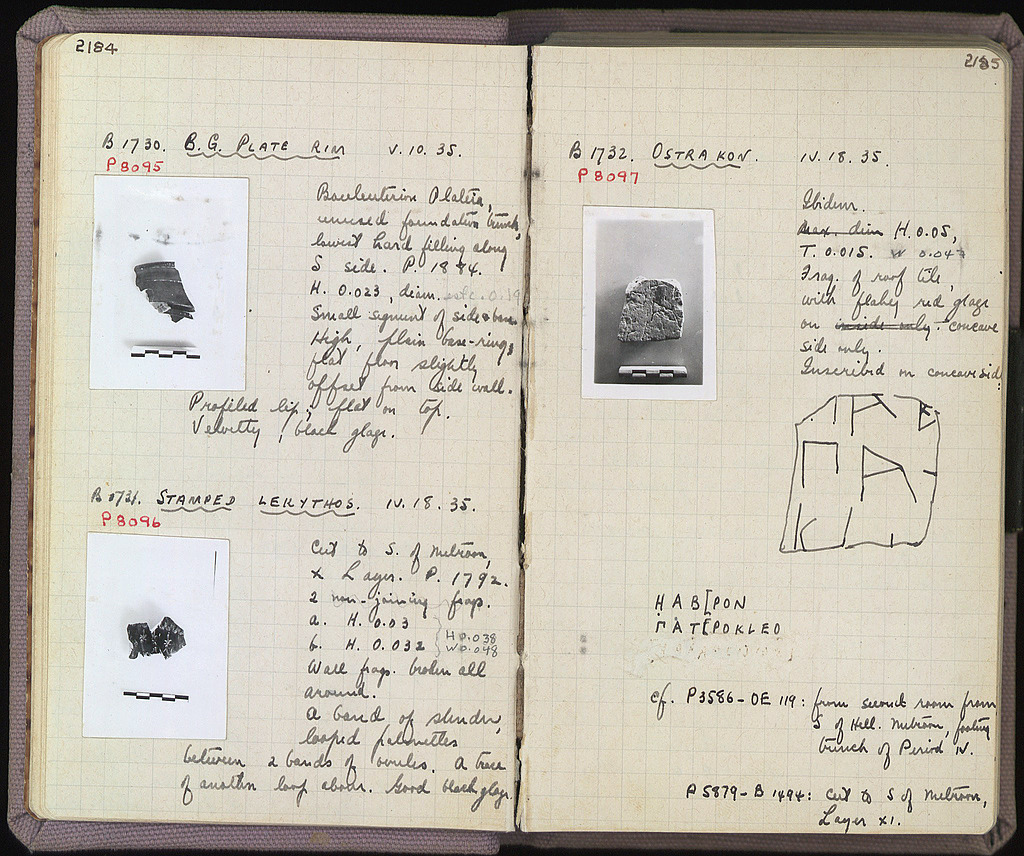 2184
B 1730. B.G. PLATE RIM V.10.35.
P 8095
Bouleuterion Plateia,
unused foundation trench,
lowest hard filling along
S side. P. 1884.
H. 0.023, diam. estc. 0.19
Small segment of side & base
High, plain base-ring,
flat floor slightly
offset from side wall.
Profiled lip, flat on top.
Velvetty, black glaze.
B 1731. STAMPED LEKYTHOS. IV.18.35.
P 8096
Cut to S. of Metroon,
X Layer. P. 1792.
2 non-joining frags.
a. H. 0.03
b. H. 0.032
H 0.038
W 0.048
Wall frags. broken all
around.
A band of slender,
looped palmettes
between 2 bands of ovules. A trace
of another loop above. Good black glaze.
2185
B 1732. OSTRAKON. IV.18.35.
P 8097
Ibidem.
Max. dim H. 0.05,
T. 0.015. W 0.047
Frag. of roof tile,
with flakey red glaze
on inside only. concave
side only.
Inscribed on concave side:
ΠΑ
Κ
HAB[PON
ΠΑΤ[ΡΟΚLEO
cf. P3586 - OE 119: from second room from
S of Hell. Metroon, footing
trench of Period IV.
P 5879 - B 1494: Cut to S of Metroon,
Layer XI.